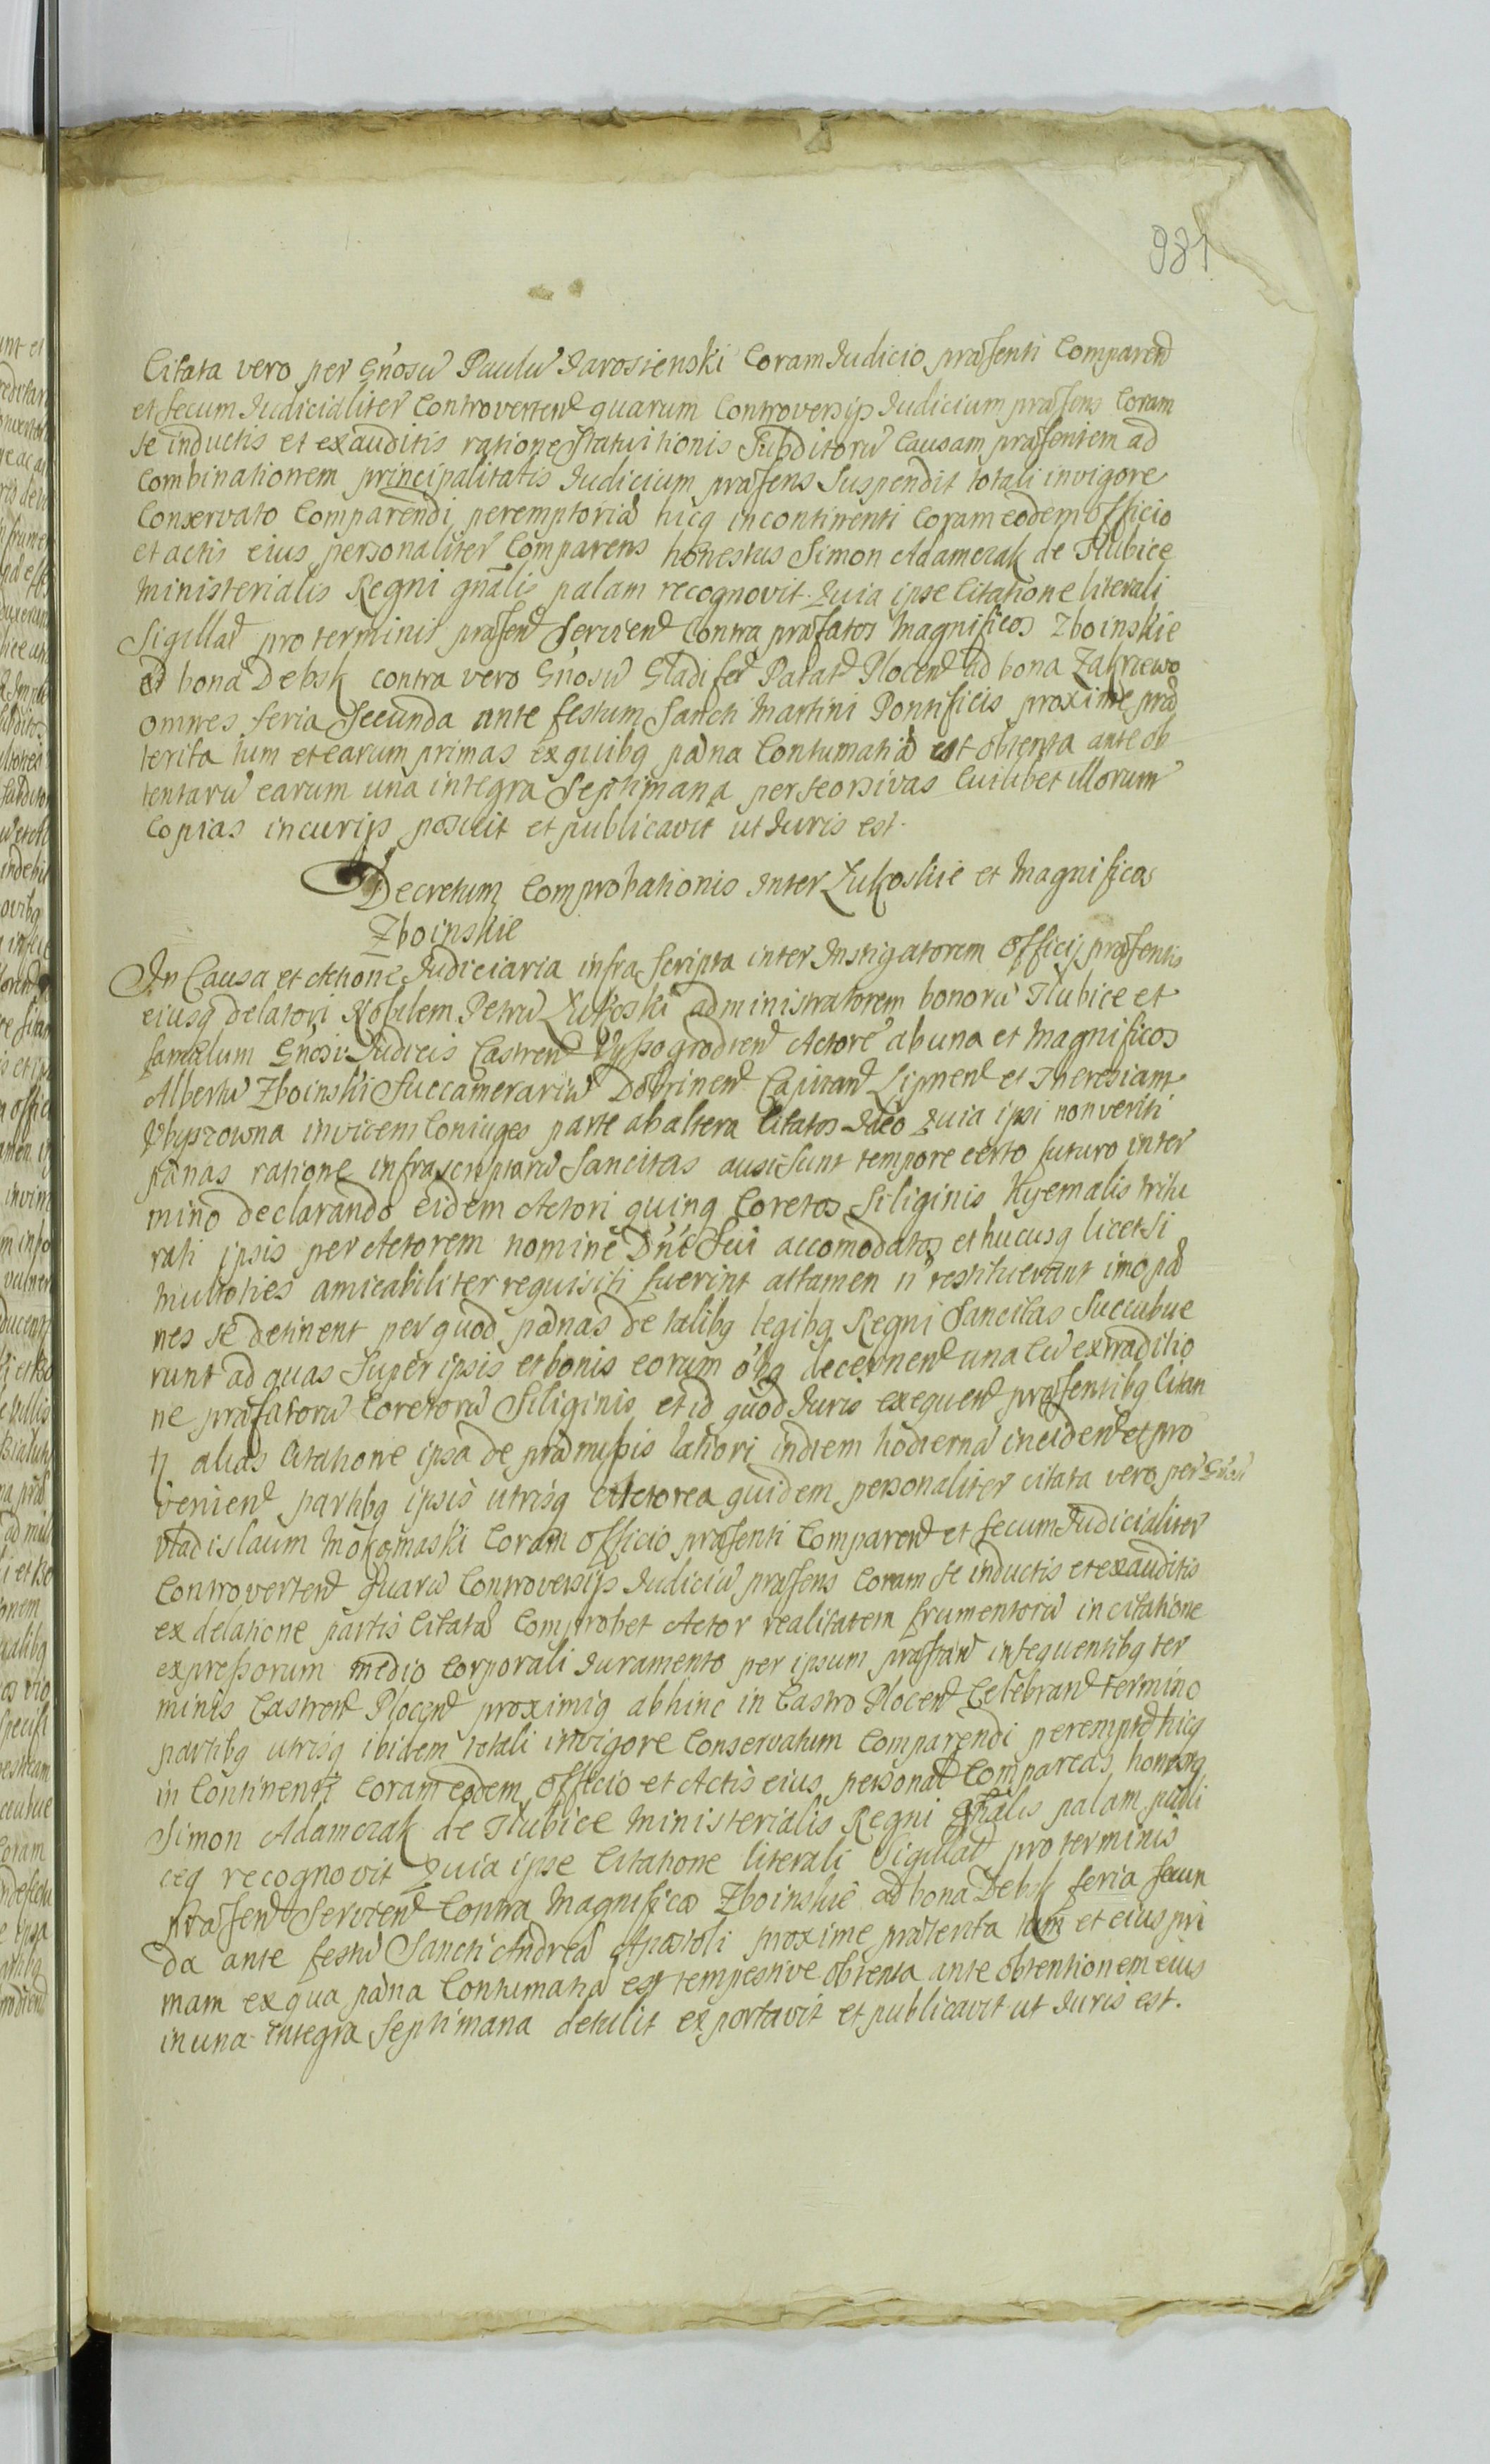 981
Citata vero per Gnosu Paulu Jarosienski Coram Judicio præsenti Comparend
et secum Judicialiter Controverten quarum Controversijs Judicium præsens Coram
se inductis et exauditis ratione statuitionis Subditoru Causam præsentem ad
Combinationem principalitatis Judicium præsens Suspendit totali in vigore
Conservato Comparendi peremptoriæ hicq incontinenti Coram eodem officio
et actis eius personaliter Comparens honestus Simon Adamczak de Hlubice
Ministerialis Regni gnalis palam recognovit. Quia ipse Citatione literali
Sigillat pro terminis præsen Servien Contra præfatos Magnificos Zboinskie
ad bona Debsk contra vero Gnosu Gladifer Palat Plocen ad bona Zakrzewo
omnes feria Secunda ante festum Sancti Martini Pontificis proxime præ
terita tum et earum primas ex quibq pæna Contumatiæ est obtenta ante ob
tentaru earum una integra Septimana per seorsivas Cuilibet illorum
Copias in curijs posuit et publicavit ut Juris est.
Decretum Comprobationis Inter Zukoskie et Magnificos
Zboinskie
In Causa et Actione Judiciaria infra scripta inter Instigatorem Officij præsentis
eiusq delatori Nobilem Petru Zukoski administratorem bonoru Hlubice et
famulum Gnosi Judicis Castren Vyssogrodien Actore ab una et Magnificos
Albertu Zboinski Succamerariu Dobrinen Capitan Lipnen et Theresiam
invicem Coniuges parte ab altera Citatos Ideo Quia ipsi non veriti
pænas ratione infrascriptaru Sancitas ausi sunt tempore certo futuro inter
mino declarando eidem Actori quinq Coretos Siliginis Hyemalis tritu
rati ipsis per Actorem nomine Dni Sui accomodatos et hucusq licet si
multoties amicabiliter requisiti fuerint attamen n restituerunt imo pæ
nes se detinent per quod pænas de talibq legibq Regni Sancitas Succubue
runt ad quas Super ipsis et bonis eorum oibq decernen una cu extraditio
ne præfatoru Coretoru Siliginis et id quod Juris exequen præsentibq Citan
tj alias Citatione ipsa de præmissis latiori in diem hodierna inciden et pro
venien partibq ipsis utrisq Actorea quidem personaliter citata vero per Gnosu
Vladislaum Mokomaski Coram Officio præsenti Comparen et secum Judicialiter
Controverten Quaru Controversijs Judiciu præsens Coram se inductis et exauditis
ex delatione partis Citatæ Comprobet Actor realitatem frumentoru in citatione
expressorum medio Corporali Juramento per ipsum præstan in sequentibq ter
minis Castren Plocen proximiq abhinc in Castro Plocen Celebran termino
partibq utrisq ibidem totali in vigore Conservatum Comparendi perempto hicq
in Continenti Coram eodem Officio et Actis eius personal Comparens honestq
Simon Adamczak de Hlubice Ministerialis Regni Gnalis palam publi
ceq recognovit Quia ipse Citatione literali Sigillat pro terminis
præsen Servien Contra Magnificos Zboinskie ad bona Debsk feria secun
da ante festu Sancti Andreæ Apostoli proxime præterita tum et eius pri
mam ex qua pæna Contumatiæ est tempestive obtenta ante obtentionem eius
in una integra Septimana detulit exportavit et publicavit ut Juris est.